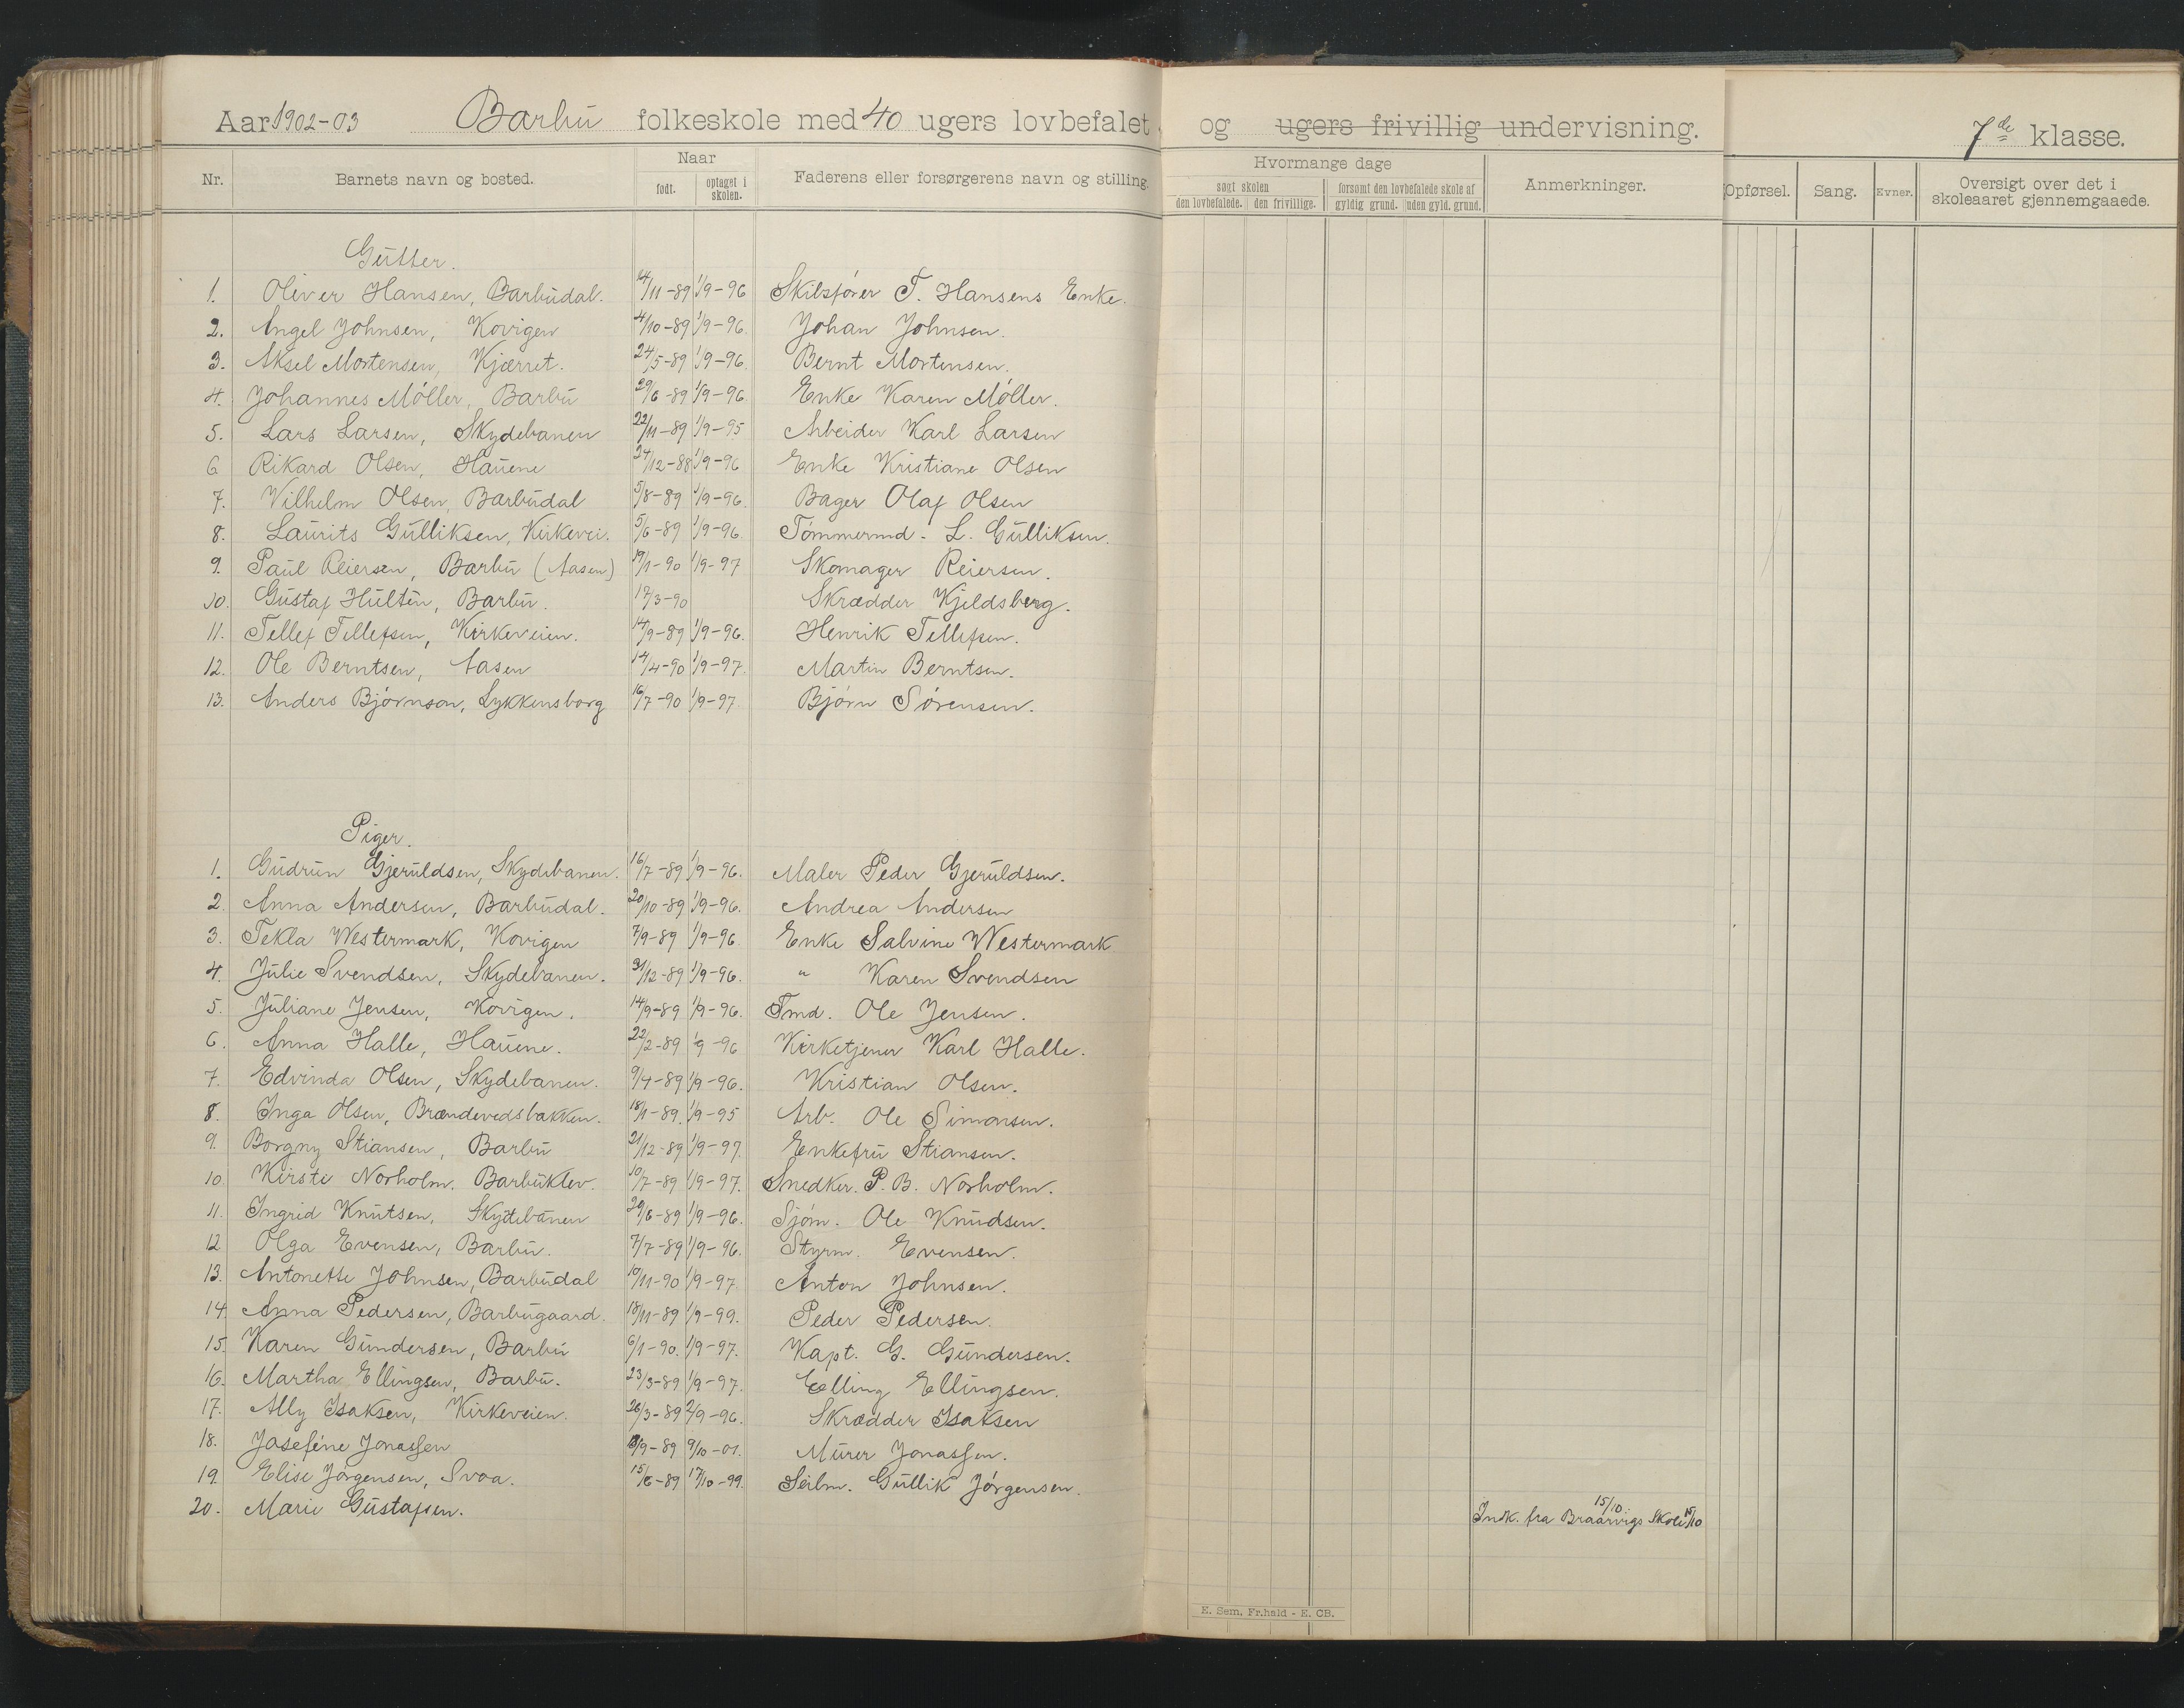 Aar 1902-03 Barbu folkeskole med 40 ugers lovbefalet og ugers frivillig undervisning. 7de klasse.
Nr. Barnets navn og bosted. Naar født. optaget i skolen. Faderens eller forsørgerens navn og stilling. Hvormange dage søgt skolen den lovbefalede. den frivillige. forsømt den lovbefalede skole af gyldig grund. uden gyld. grund. Anmerkninger. Opførsel. Sang. Evner. Oversigt over det i skoleaaret gjennemgaaede.
Gutter.
1. Oliver Hansen, Barbudal. 14/11-89 1/9-96 Skibsfører T. Hansens Enke.
2. Angel Johnsen, Kovigen 4/10-89 1/9-96. Johan Johnsen.
3. Aksel Mortensen, Kjærret. 24/5-89 1/9-96. Bernt Mortensen.
4. Johannes Møller, Barbu 29/6-89 1/9-96 Enke Karen Møller.
5. Lars Larsen, Skydebanen 22/11-89 1/9-95 Arbeider Karl Larsen
6 Rikard Olsen, Hauene 24/12-88 1/9-96 Enke Kristiane Olsen
7. Vilhelm Olsen, Barbudal 5/8-89 1/9-96. Bager Olaf Olsen
8. Laurits Gulliksen, Kirkevei. 5/6-89 1/9-96. Tømmermd. L. Gulliksen.
9. Paul Reiersen, Barbu (Aasen) 19/1-90 1/9-97 Skomager Reiersen.
10. Gustaf Hultén, Barbu. 17/3-90 Skrædder Kjeldsberg.
11. Tellef Tellefsen, Kirkeveien. 14/9-89 1/9-96. Henrik Tellefsen.
12. Ole Berntsen, Aasen 14/4-90 1/9-97. Martin Berntsen.
13. Anders Bjørnson, Lykkensborg 16/7-90 1/9-97. Bjørn Sørensen.
Piger.
1. Gudrun Gjeruldsen, Skydebanen. 16/7-89 1/9-96. Maler Peder Gjeruldsen.
2. Anna Andersen, Barbudal. 20/10-89 1/9-96. Andrea Andersen
3. Tekla Westermark, Kovigen 7/9-89 1/9-96. Enke Salvine Westermark
4. Julie Svendsen, Skydebanen. 31/12-89 1/9-96. " Karen Svendsen
5. Juliane Jensen, Kovigen. 14/9-89 1/9-96. Tmd. Ole Jensen.
6. Anna Halle, Hauene. 22/2-89 1/9-96 Kirketjener Karl Halle.
7. Edvinda Olsen, Skydebanen. 9/4-89 1/9-96. Kristian Olsen.
8. Inga Olsen, Brændevedsbakken. 18/1-89. 1/9-95 Arb. Ole Simonsen.
9. Borgny Stiansen, Barbu 21/12-89 1/9-97. Enkefru Stiansen.
10. Kirsti Norholm. Barbuklev. 10/7-89 1/9-97. Snedker. P. B. Norholm.
11. Ingrid Knutsen, Skydebanen 29/6-89 1/9-96. Sjøm. Ole Knudsen.
12 Olga Evensen, Barbu. 7/7-89 1/9-96. Styrm. Evensen.
13. Antonette Johnsen, Barbudal 10/11-90 1/9-97. Anton Johnsen.
14. Anna Pedersen, Barbugaard. 18/11-89 1/9-99. Peder Pedersen.
15. Karen Gundersen, Barbu 6/1-90. 1/9-97. Kapt. G. Gundersen.
16. Martha Ellingsen, Barbu. 23/3-89 1/9-97. Elling Ellingsen.
17. Ally Isaksen, Kirkeveien. 26/3-89 2/9-96. Skrædder Isaksen
18. Josefine Jonassen 9-89 9/10-01. Murer Jonassen.
19. Elise Jørgensen, Svoa. 15/6-89 17/10-99. Seilm. Gullik Jørgensen.
20. Marie Gustafsen. Indk. fra Braarvigs Skole 15/10
15/10
E. Sem, Fr.hald - E. CB.